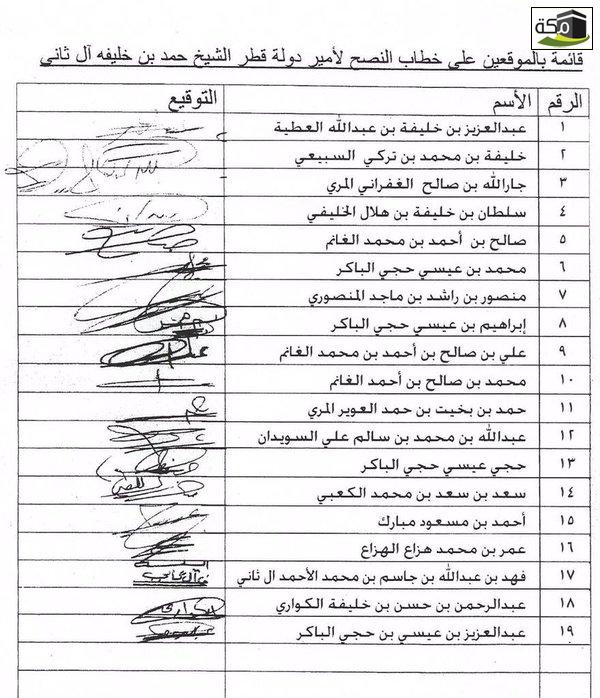 مكة
قائمة بالموقعين على خطاب النصح لأمير دولة قطر الشيخ حمد بن خليفه آل ثاني
الرقم الأسم التوقيع
١ عبدالعزيز بن خليفة بن عبدالله العطية
٢ خليفة بن محمد بن تركي السبيعي
٣ جارالله بن صالح الغفراني المري
٤ سلطان بن خليفة بن هلال الخليفي
٥ صالح بن أحمد بن محمد الغانم
٦ محمد بن عيسي حجي الباكر
٧ منصور بن راشد بن ماجد المنصوري
٨ إبراهيم بن عيسي حجي الباكر
٩ علي بن صالح بن أحمد بن محمد الغانم
١٠ محمد بن صالح بن أحمد الغانم
١١ حمد بن بخيت بن حمد العوير المري
١٢ عبدالله بن محمد بن سالم علي السويدان
١٣ حجي عيسي حجي الباكر
١٤ سعد بن سعد بن محمد الكعبي
١٥ أحمد بن مسعود مبارك
١٦ عمر بن محمد هزاع الهزاع
١٧ فهد بن عبدالله بن جاسم بن محمد الأحمد ال ثاني
١٨ عبدالرحمن بن حسن بن خليفة الكواري
١٩ عبدالعزيز بن عيسي بن حجي الباكر